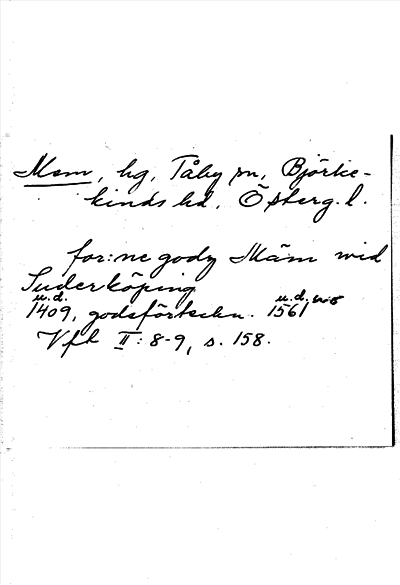 Mem, hg, Tåby sn, Björke-
kinds hd, Östergl.
for:ne godz Mäm wid
Suderköping
u.d. u.d. wio
1409, godsförteckn. 1561
Vfl II: 8-9, s. 158.